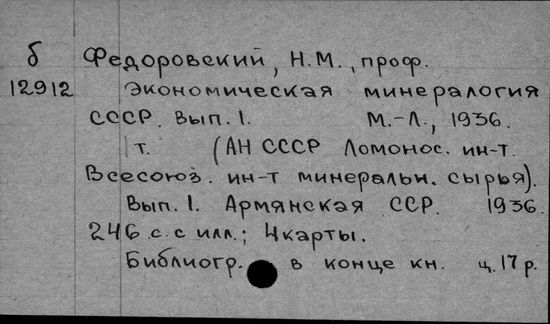 б Федоровский, Н.М., проф.
12912 Экономическая минералогия
СССР. Вып. 1. М.-Л., 1936.
1 т. (АН СССР Ломонос. ин-т.
Всесоюз. ин-т минеральн. сырья).
Вып. 1. Армянская ССР. 1936.
246 с. с илл.; 4 карты.
Библиогр. в конце кн. ц. 17 р.